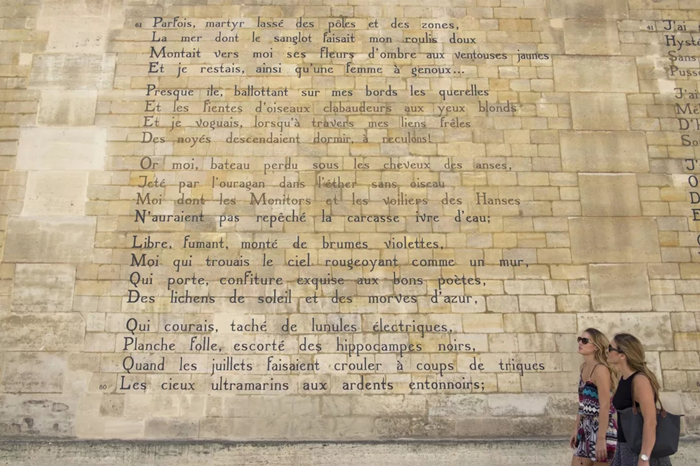 61 Parfois, martyr lassé des pôles et des zones,
La mer dont le sanglot faisait mon roulis doux
Montait vers moi ses fleurs d'ombre aux ventouses jaunes
Et je restais, ainsi qu'une femme à genoux...
Presque île, ballottant sur mes bords les querelles
Et les fientes d'oiseaux clabaudeurs aux yeux blonds
Et je voguais, lorsqu'à travers mes liens frêles
Des noyés descendaient dormir, à reculons!
Or moi, bateau perdu sous les cheveux des anses,
Jeté par l'ouragan dans l'éther sans oiseau
Moi dont les Monitors et les voiliers des Hanses
N'auraient pas repêché la carcasse ivre d'eau;
Libre, fumant, monté de brumes violettes,
Moi qui trouais le ciel rougeoyant comme un mur,
Qui porte, confiture exquise aux bons poètes,
Des lichens de soleil et des morves d'azur,
Qui courais, taché de lunules électriques,
Planche folle, escorté des hippocampes noirs,
Quand les juillets faisaient crouler à coups de triques
80 Les cieux ultramarins aux ardents entonnoirs;
J'ai
Hysté
Sans
J'ai